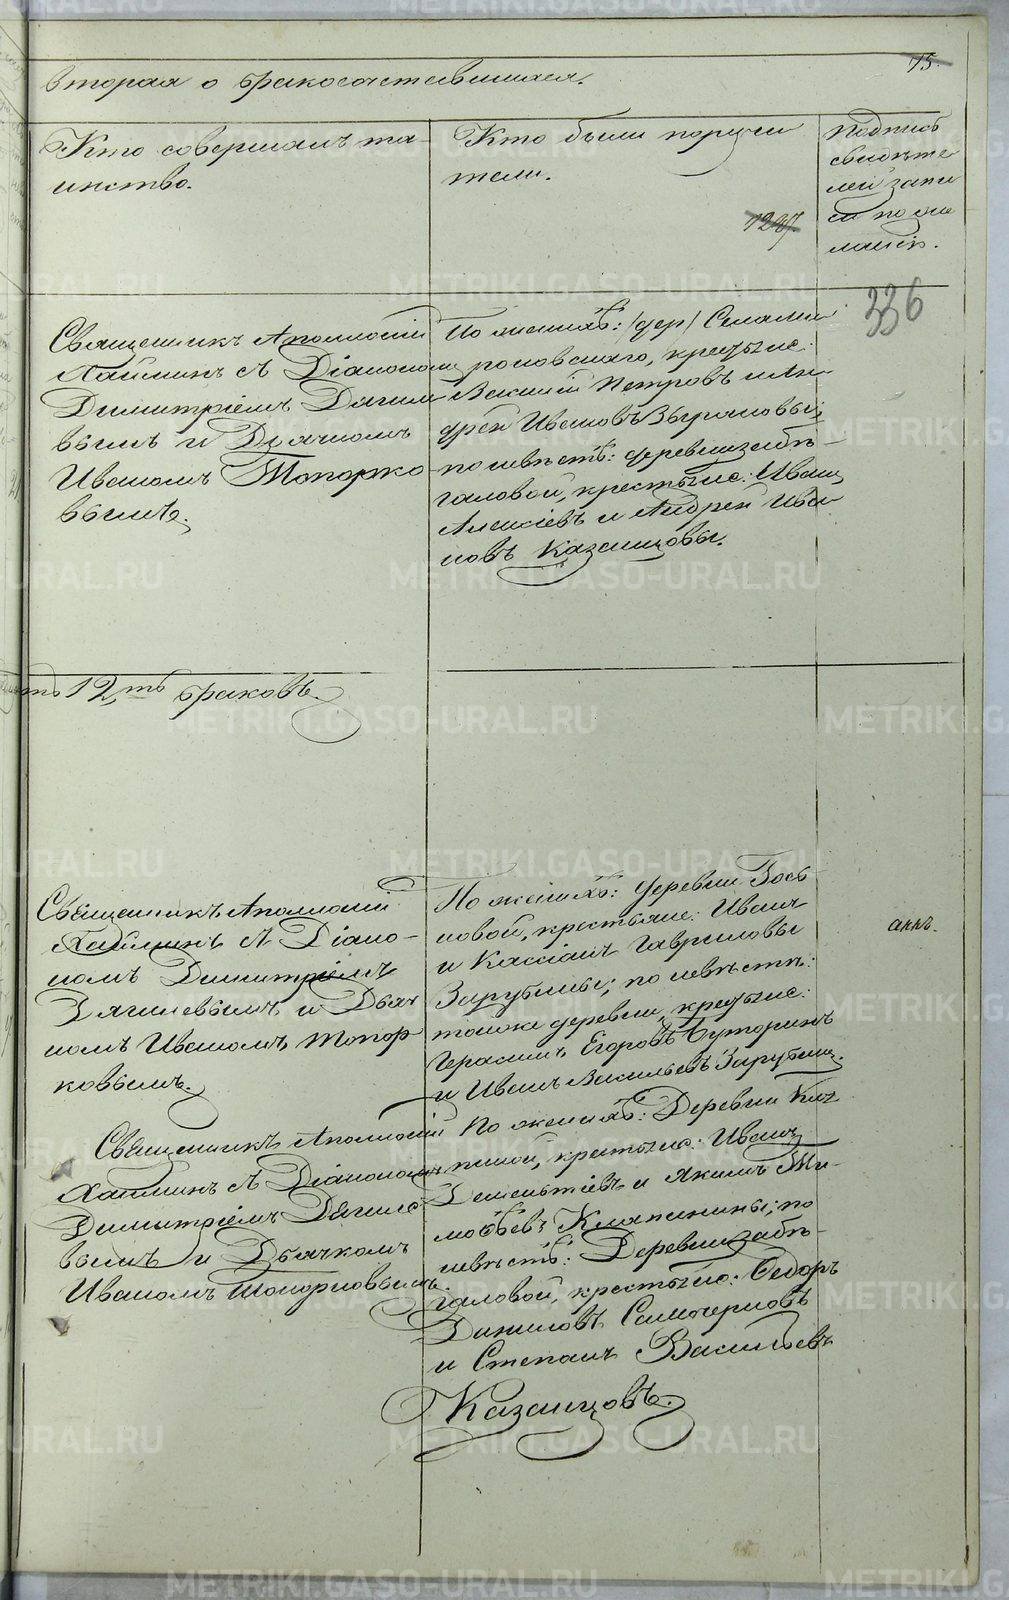 вторая о бракосочетавшихся.
75.
Кто совершалъ та-
инство.
Кто были поручи
тели.
1247
Подпись
свидѣте
лей запи
си по же
ланію.
336
Священникъ Аполлоній
Хайминъ съ Діакономъ
Димитріемъ Дягиле
вымъ и Дьячкомъ
Иваномъ Топорко-
вымъ.
По женихѣ: (дер)
роповскаго, крестьяне:
Василій Петровъ и Ан-
дрей Ивановъ Зыряновы;
по невѣстѣ: деревни Забѣ-
галовой, крестьяне: Иванъ
Алексіевъ и Андрей Ива-
новъ Казанцовы.
12ть браковъ.
Священникъ Аполлоній
Хайминъ съ Діако-
номъ Димитріемъ
Дягилевымъ и Дьяч
комъ Иваномъ Топор
ковымъ.
По женихѣ: деревни
новой, крестьяне: Иванъ
и Кассіанъ Гавриловы
Зарубины; по невѣстѣ:
тойже деревни, крестьяне:
Герасимъ Егоровъ Буторинъ
и Иванъ Васильевъ Зарубинъ.
Священникъ Аполлоній
Хайминъ съ Діакономъ
Димитріемъ Дягиле
вымъ и Дьячкомъ
Иваномъ Топорковымъ.
По женихѣ: Деревни
крестьяне: Иванъ
Дементіевъ и Якимъ Ти-
моѳеевъ Клапинины; по
невѣстѣ: Деревни Забѣ-
галовой, крестьяне: Ѳедоръ
Даниловъ Самочерновъ
и Степанъ Васильевъ
Казанцовъ.
METRIKI.GASO-URAL.RU